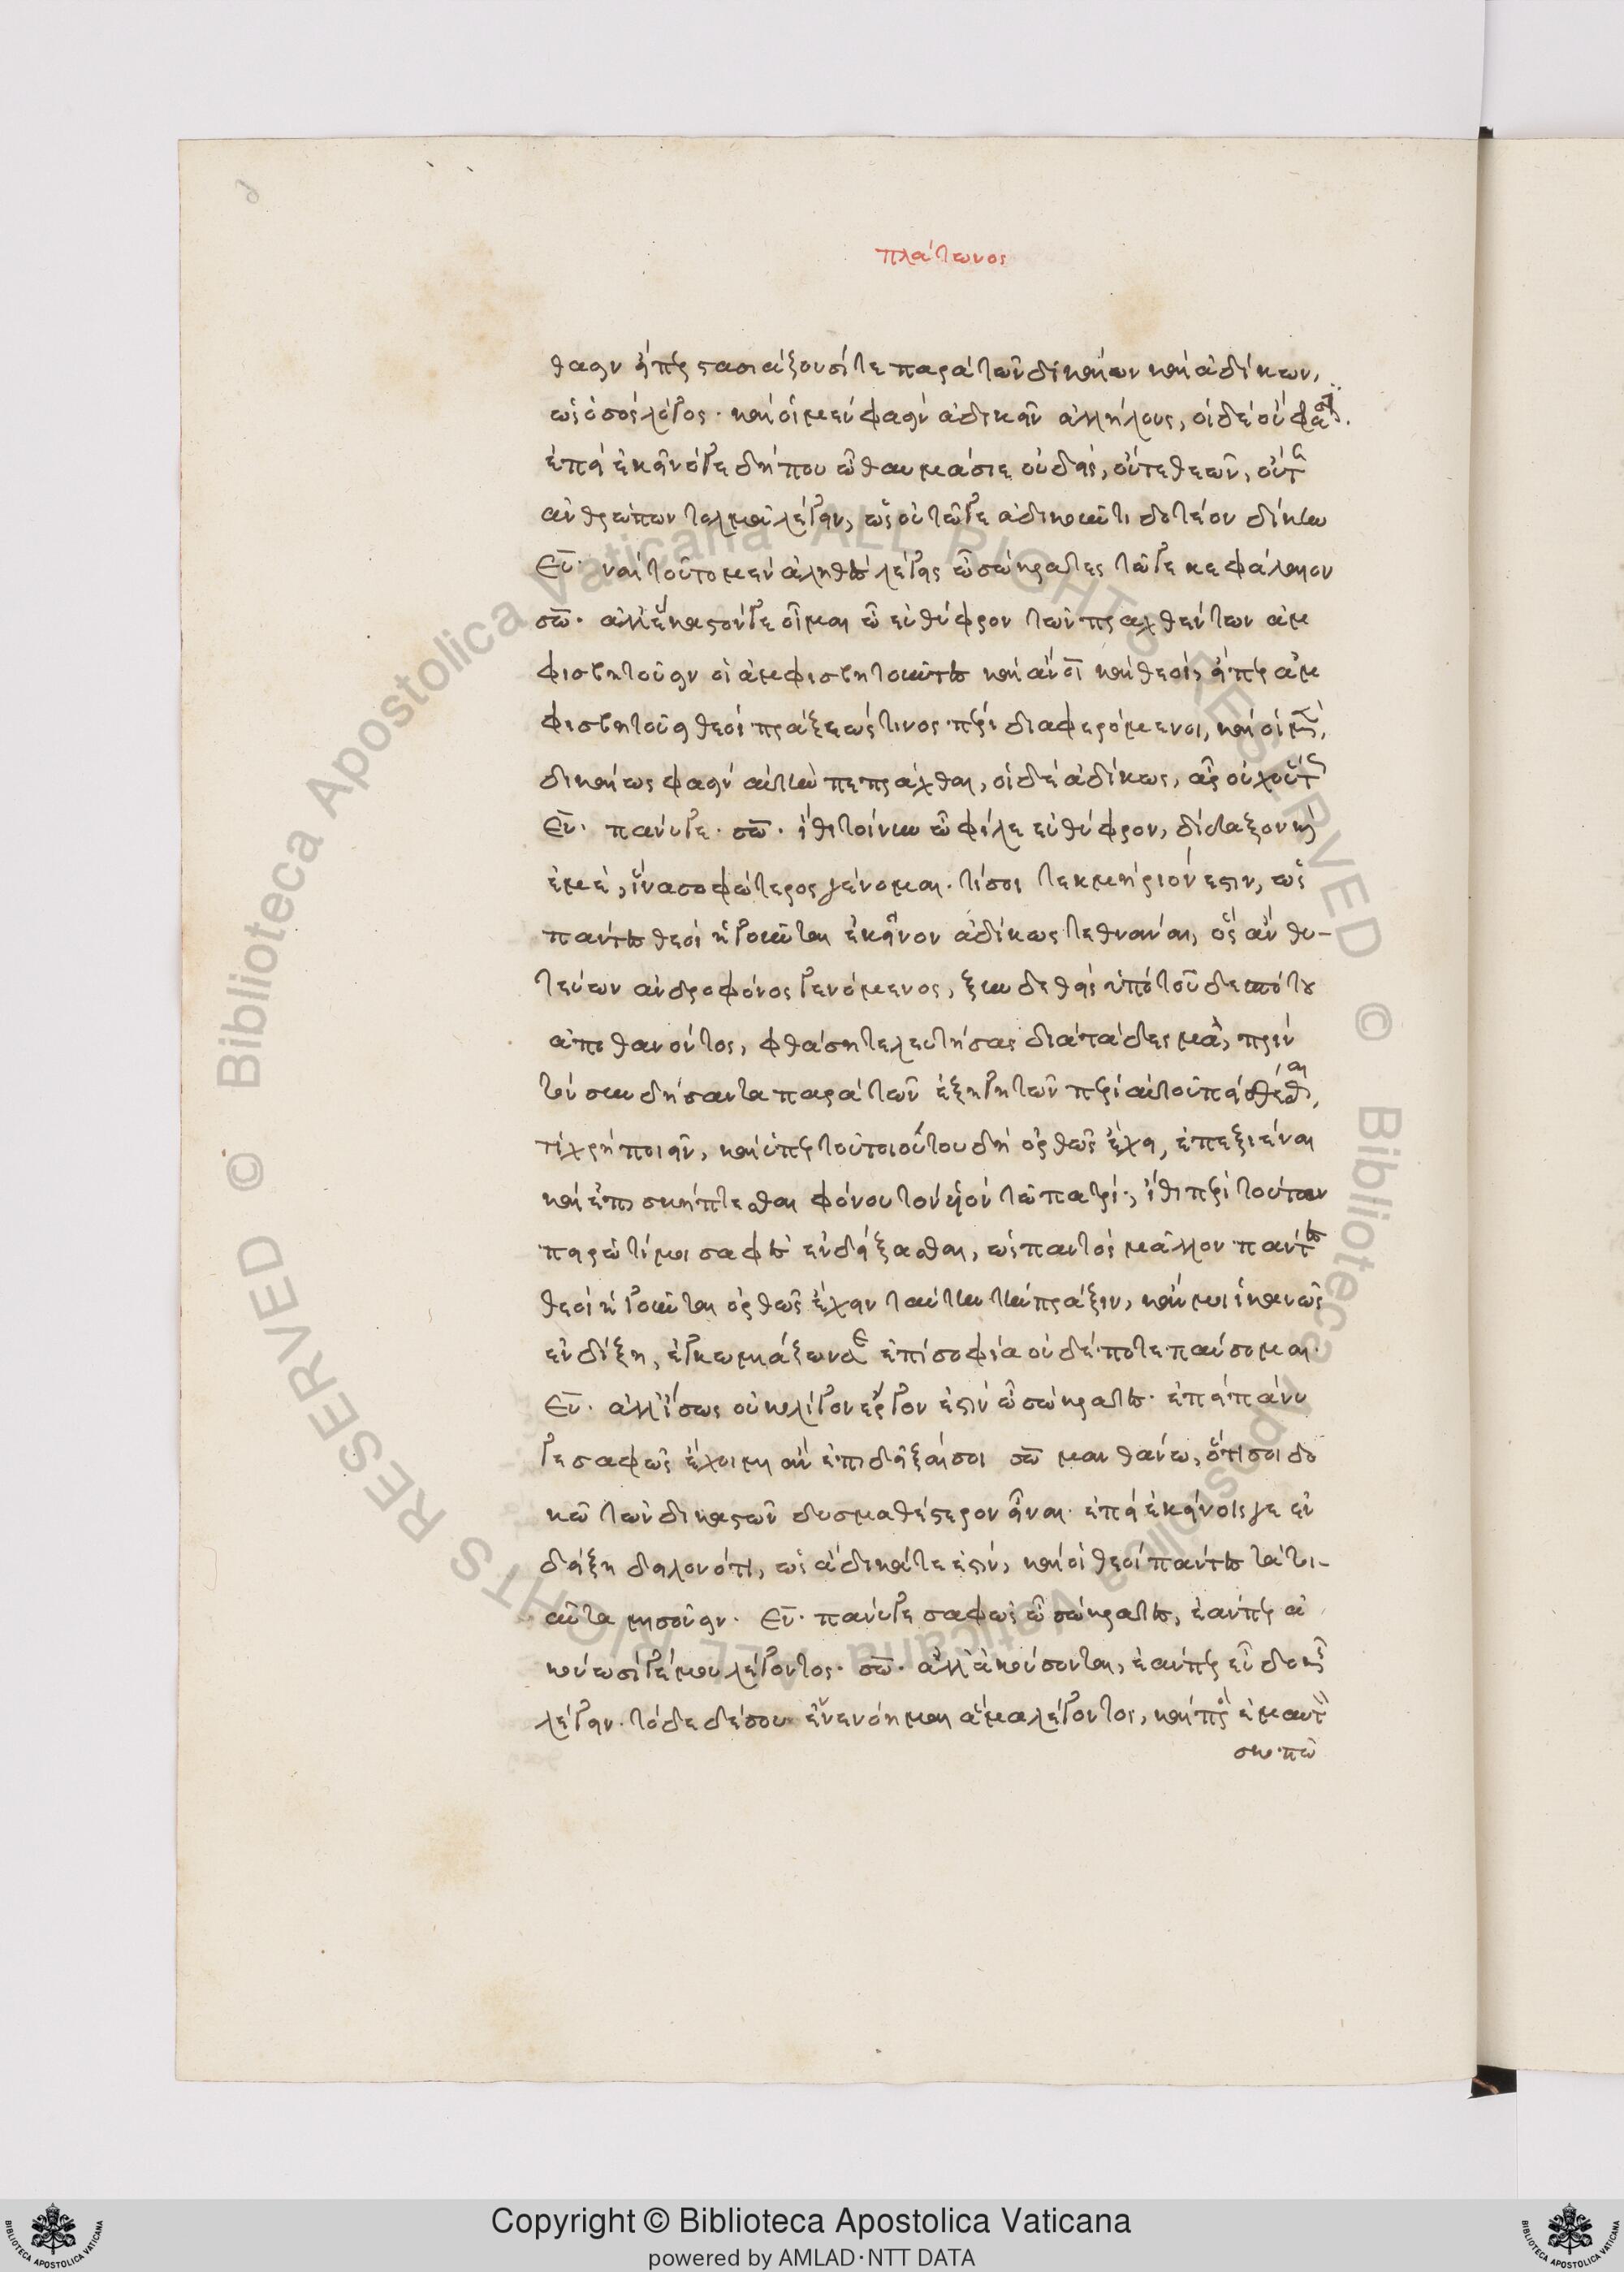 πλάτωνος
θασιν εἴπερ στασιάζουσί τε παρὰ τῶν δικαίων καὶ ἀδίκων,
ὡς ὁ σὸς λόγος· καὶ οἱ μὲν φασὶν ἀδικεῖν ἀλλήλους, οἱ δὲ οὔ φασιν.
ἐπεὶ ἐκεῖνό γε δήπου ὦ θαυμάσιε οὐδεὶς, οὔτε θεῶν, οὔτε
ἀνθρώπων τολμᾷ λέγειν, ὡς οὐ τῷ γε ἀδικοῦντι δοτέον δίκην
ΕΥ· ναὶ τοῦτο μὲν ἀληθὲς λέγεις ὦ σώκρατες τῷ γε κεφάλαιον
σω· ἀλλ' ἕκαστόν γε οἶμαι ὦ εὐθύφρον τῶν πραχθέντων ἀμ
φισβητοῦσιν οἱ ἀμφισβητοῦντες καὶ ἄνοι καὶ θεοὶ, εἴπερ ἀμ
φισβητοῦσι θεοί πράξεώς τινος περὶ διαφερόμενοι, καὶ οἱ μὲν,
δικαίως φασὶν αὐτὴν πεπράχθαι, οἱ δὲ ἀδίκως, ἆρ' οὐχ οὕτως
ΕΥ· πάνυ γε· σω· ἴθι τοίνυν ὦ φίλε εὐθύφρον, δίδαξον καὶ
ἐμὲ, ἵνα σοφώτερος γένομαι. τί σοι τεκμήριόν ἐστιν, ὡς
πάντες θεοὶ ἡγοῦνται ἐκεῖνον ἀδίκως τεθνάναι, ὃς ἂν θυ-
τεύων ἀνδροφόνος γενόμενος, ξυνδεθεὶς ὑπὸ τοῦ δεσπότου
ἀποθανόντος, φθάσῃ τελευτήσας διὰ τὰ δεσμὰ, πρὶν
τὸν συνδήσαντα παρὰ τῶν ἐξηγητῶν περὶ αὐτοῦ πείθεσθαι,
τί χρὴ ποιεῖν, καὶ ὑπὲρ τοῦ τοιούτου δὴ ὀρθῶς ἔχει, ἐπεξιέναι
καὶ ἐπισκήπτεσθαι φόνου τὸν υἱὸν τῷ πατρί·, ἴθι περὶ τούτων
πειρῶ τί μοι σαφὲς ἐνδείξασθαι, ὡς παντὸς μᾶλλον πάντες
θεοὶ ἡγοῦνται ὀρθῶς ἔχειν ταύτην τὴν πράξιν, κἄν μοι ἱκανῶς
ἐνδίξῃ, ἐγκωμιάζων σε ἐπὶ σοφίᾳ οὐδέποτε παύσομαι·
ΕΥ· ἀλλ' ἴσως οὐκ ὀλίγον ἔργον ἐστὶν ὦ σώκρατες· ἐπεὶ πάνυ
γε σαφῶς ἔχοιμι ἂν ἐπιδεῖξαί σοι σω μανθάνω, ὅτι σοι δο
κῶ τῶν δικαστῶν δυσμαθέστερον εἶναι· ἐπεὶ ἐκείνοις γε ἐν
δείξῃ δῃλονότι, ὡς ἄδικά τε ἐστὶν, καὶ οἱ θεοὶ πάντες τὰ τοι-
αῦτα μισοῦσιν· ΕΥ· πάνυ γε σαφῶς ὦ σώκρατες, ἐάνπερ ἀ
κούωσί γέ μου λέγοντος· σω· ἀλλ' ἀκούσονται, ἐάνπερ εὖ δοκῇς
λέγειν. τόδε δέ σου ἐνενόησαι ἅμα λέγοντος, καὶ πρὸς ἐμαυτὸν
σκοπῶ